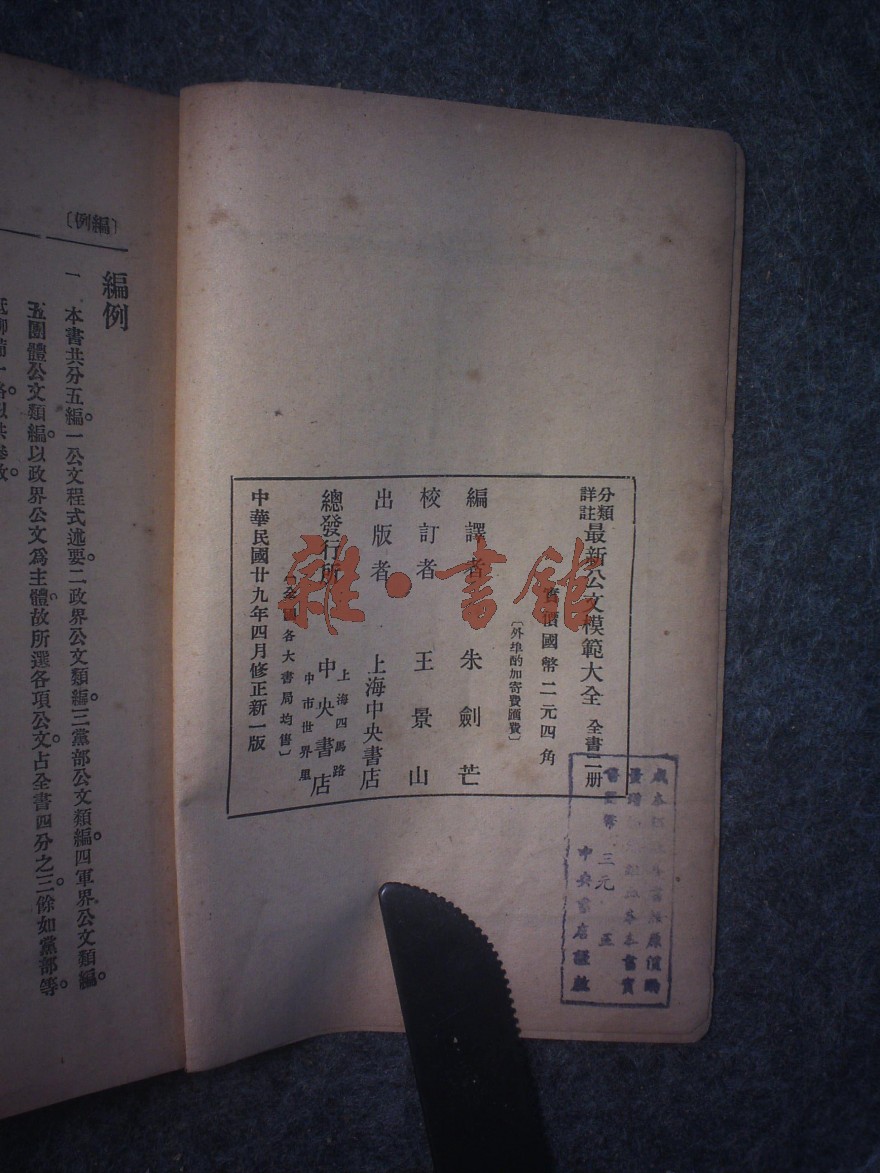 分類詳註最新公文模範大全 全書二册
實價國幣二元四角
〔外埠酌加寄費匯費〕
編譯者 朱劍芒
校訂者 王景山
出版者 上海中央書店
總發行所 上海四馬路中市世界里 中央書店
〔全國各大書局均售〕
中華民國廿九年四月修正新一版
雜·書館
三元
中央書店謹啟
〔編例〕
編例
一 本書共分五編。一公文程式述要。二政界公文類編。三黨部公文類編。四軍界公文類編。
五團體公文類編。以政界公文爲主體。故所選各項公文。占全書四分之三。餘如黨部等。